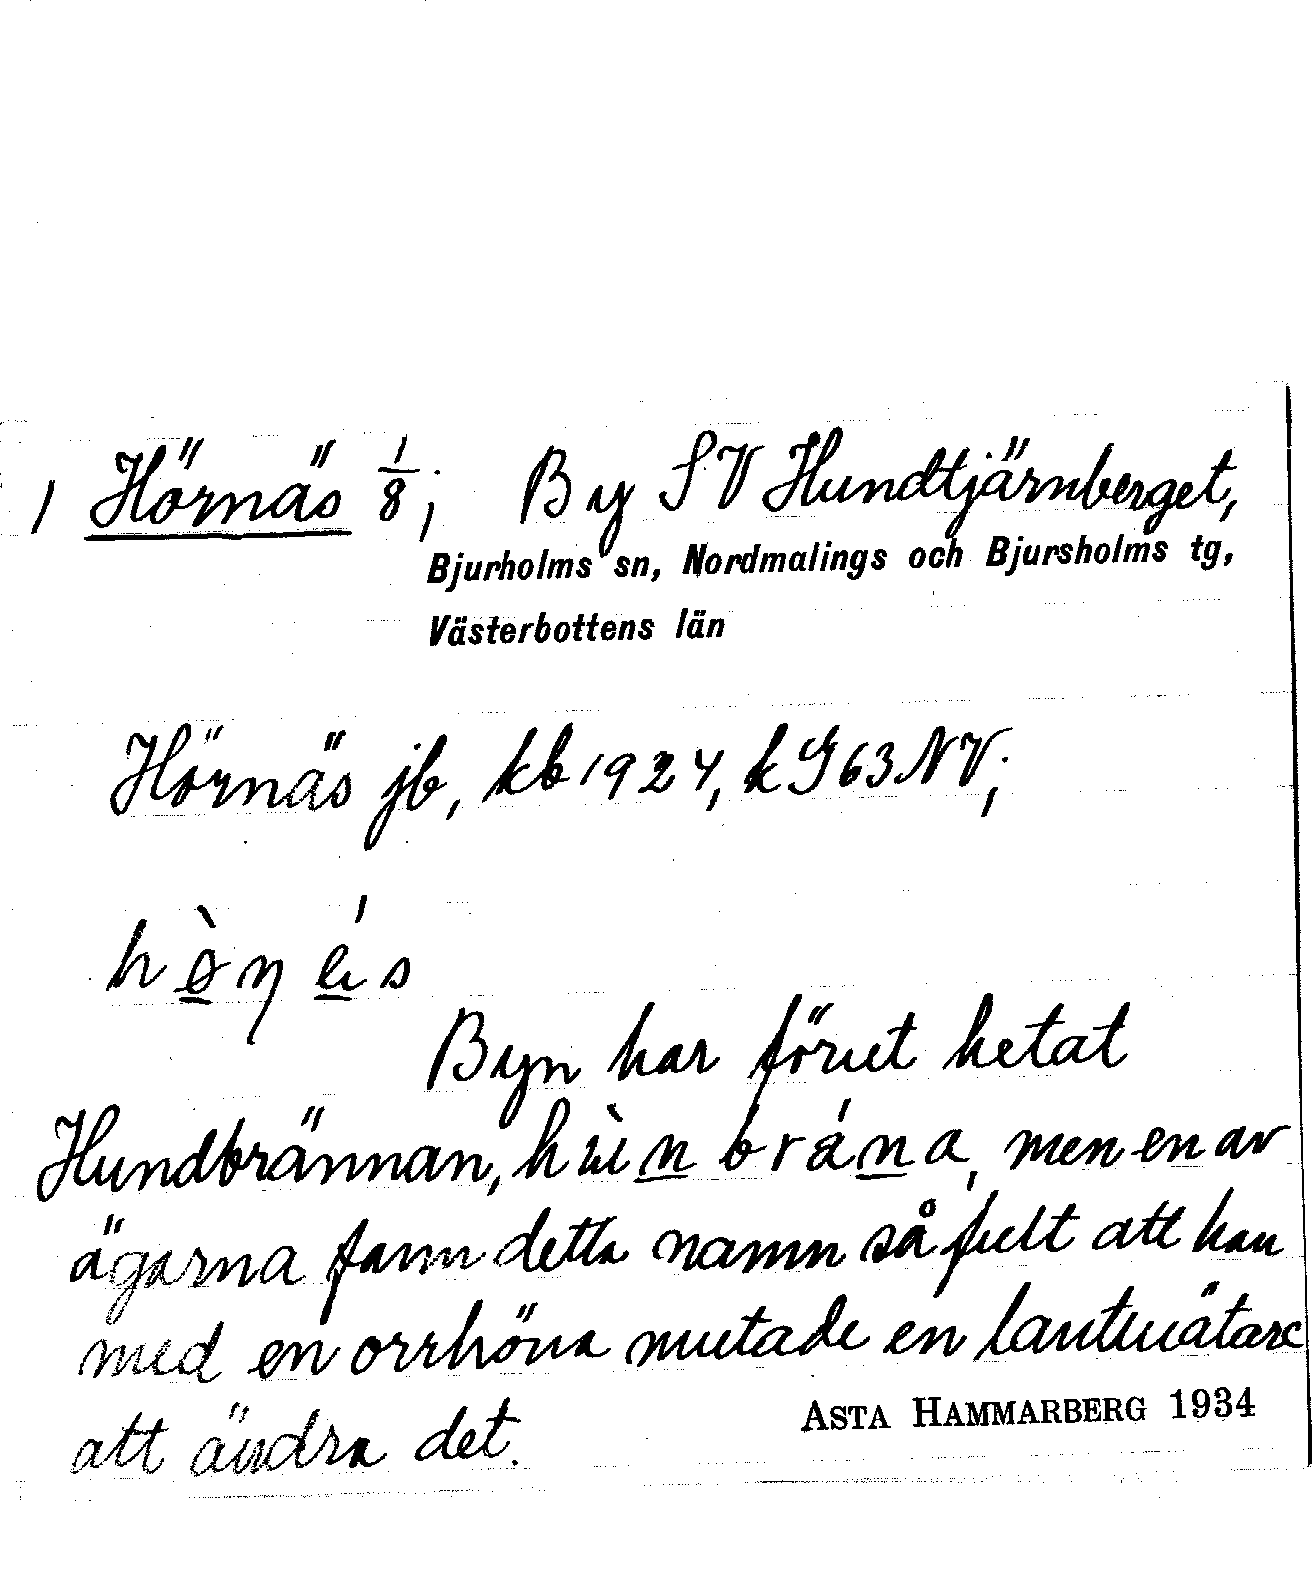 1 Hörnäs 1/8; By SV Hundtjärnberget,
Bjurholms sn, Nordmalings och Bjursholms tg,
Västerbottens län
Hörnäs jb, kb 1924, kG63NV;
Byn har förut hetat
Hundbrännan, men en av
ägarna fann detta namn så fult att han
med en orrhöna mutade en lantmätare
att ändra det.
ASTA HAMMARBERG 1934